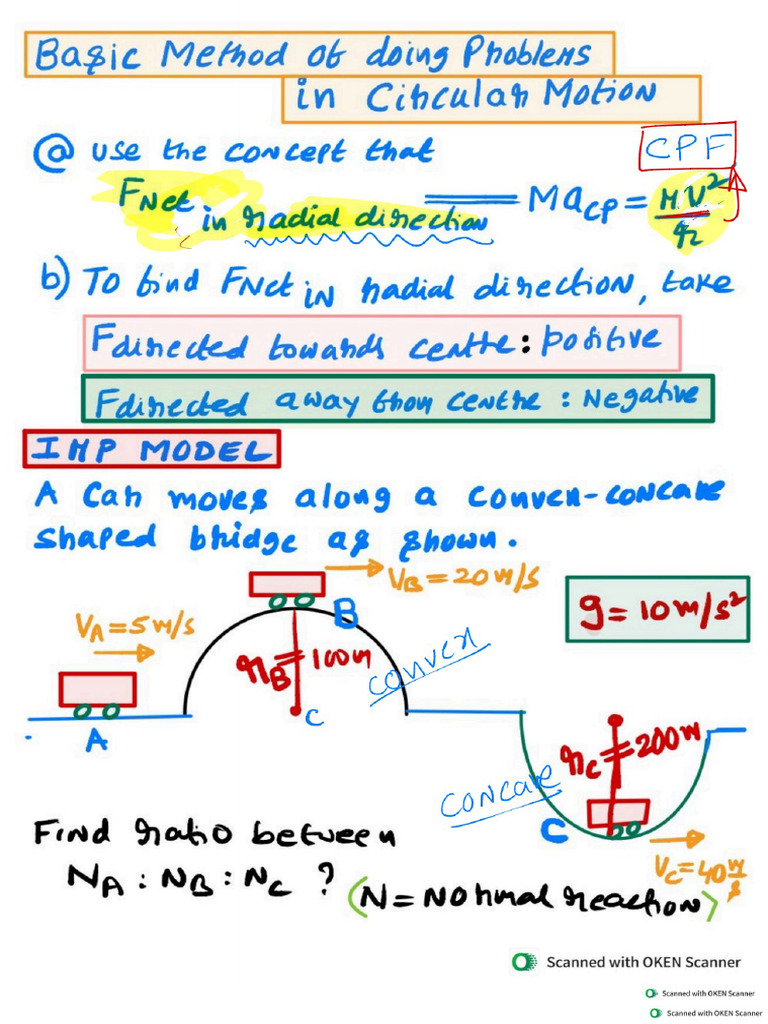 Basic Method of doing Problems
in Circular Motion
@ use the concept that
CPF
FNet in radial direction = Macp = MV²/r
b) To find FNet in radial direction, take
Fdirected towards centre : positive
Fdirected away from centre : Negative
IMP MODEL
A Car moves along a convex-concave
shaped bridge as shown.
VB = 20m/s
VA = 5m/s
g = 10m/s²
B
rB = 100m
convex
C
A
rC = 200m
concave
C
Find ratio between
VC = 40m/s
NA : NB : NC ?
(N = Normal reaction)
Scanned with OKEN Scanner
Scanned with OKEN Scanner
Scanned with OKEN Scanner